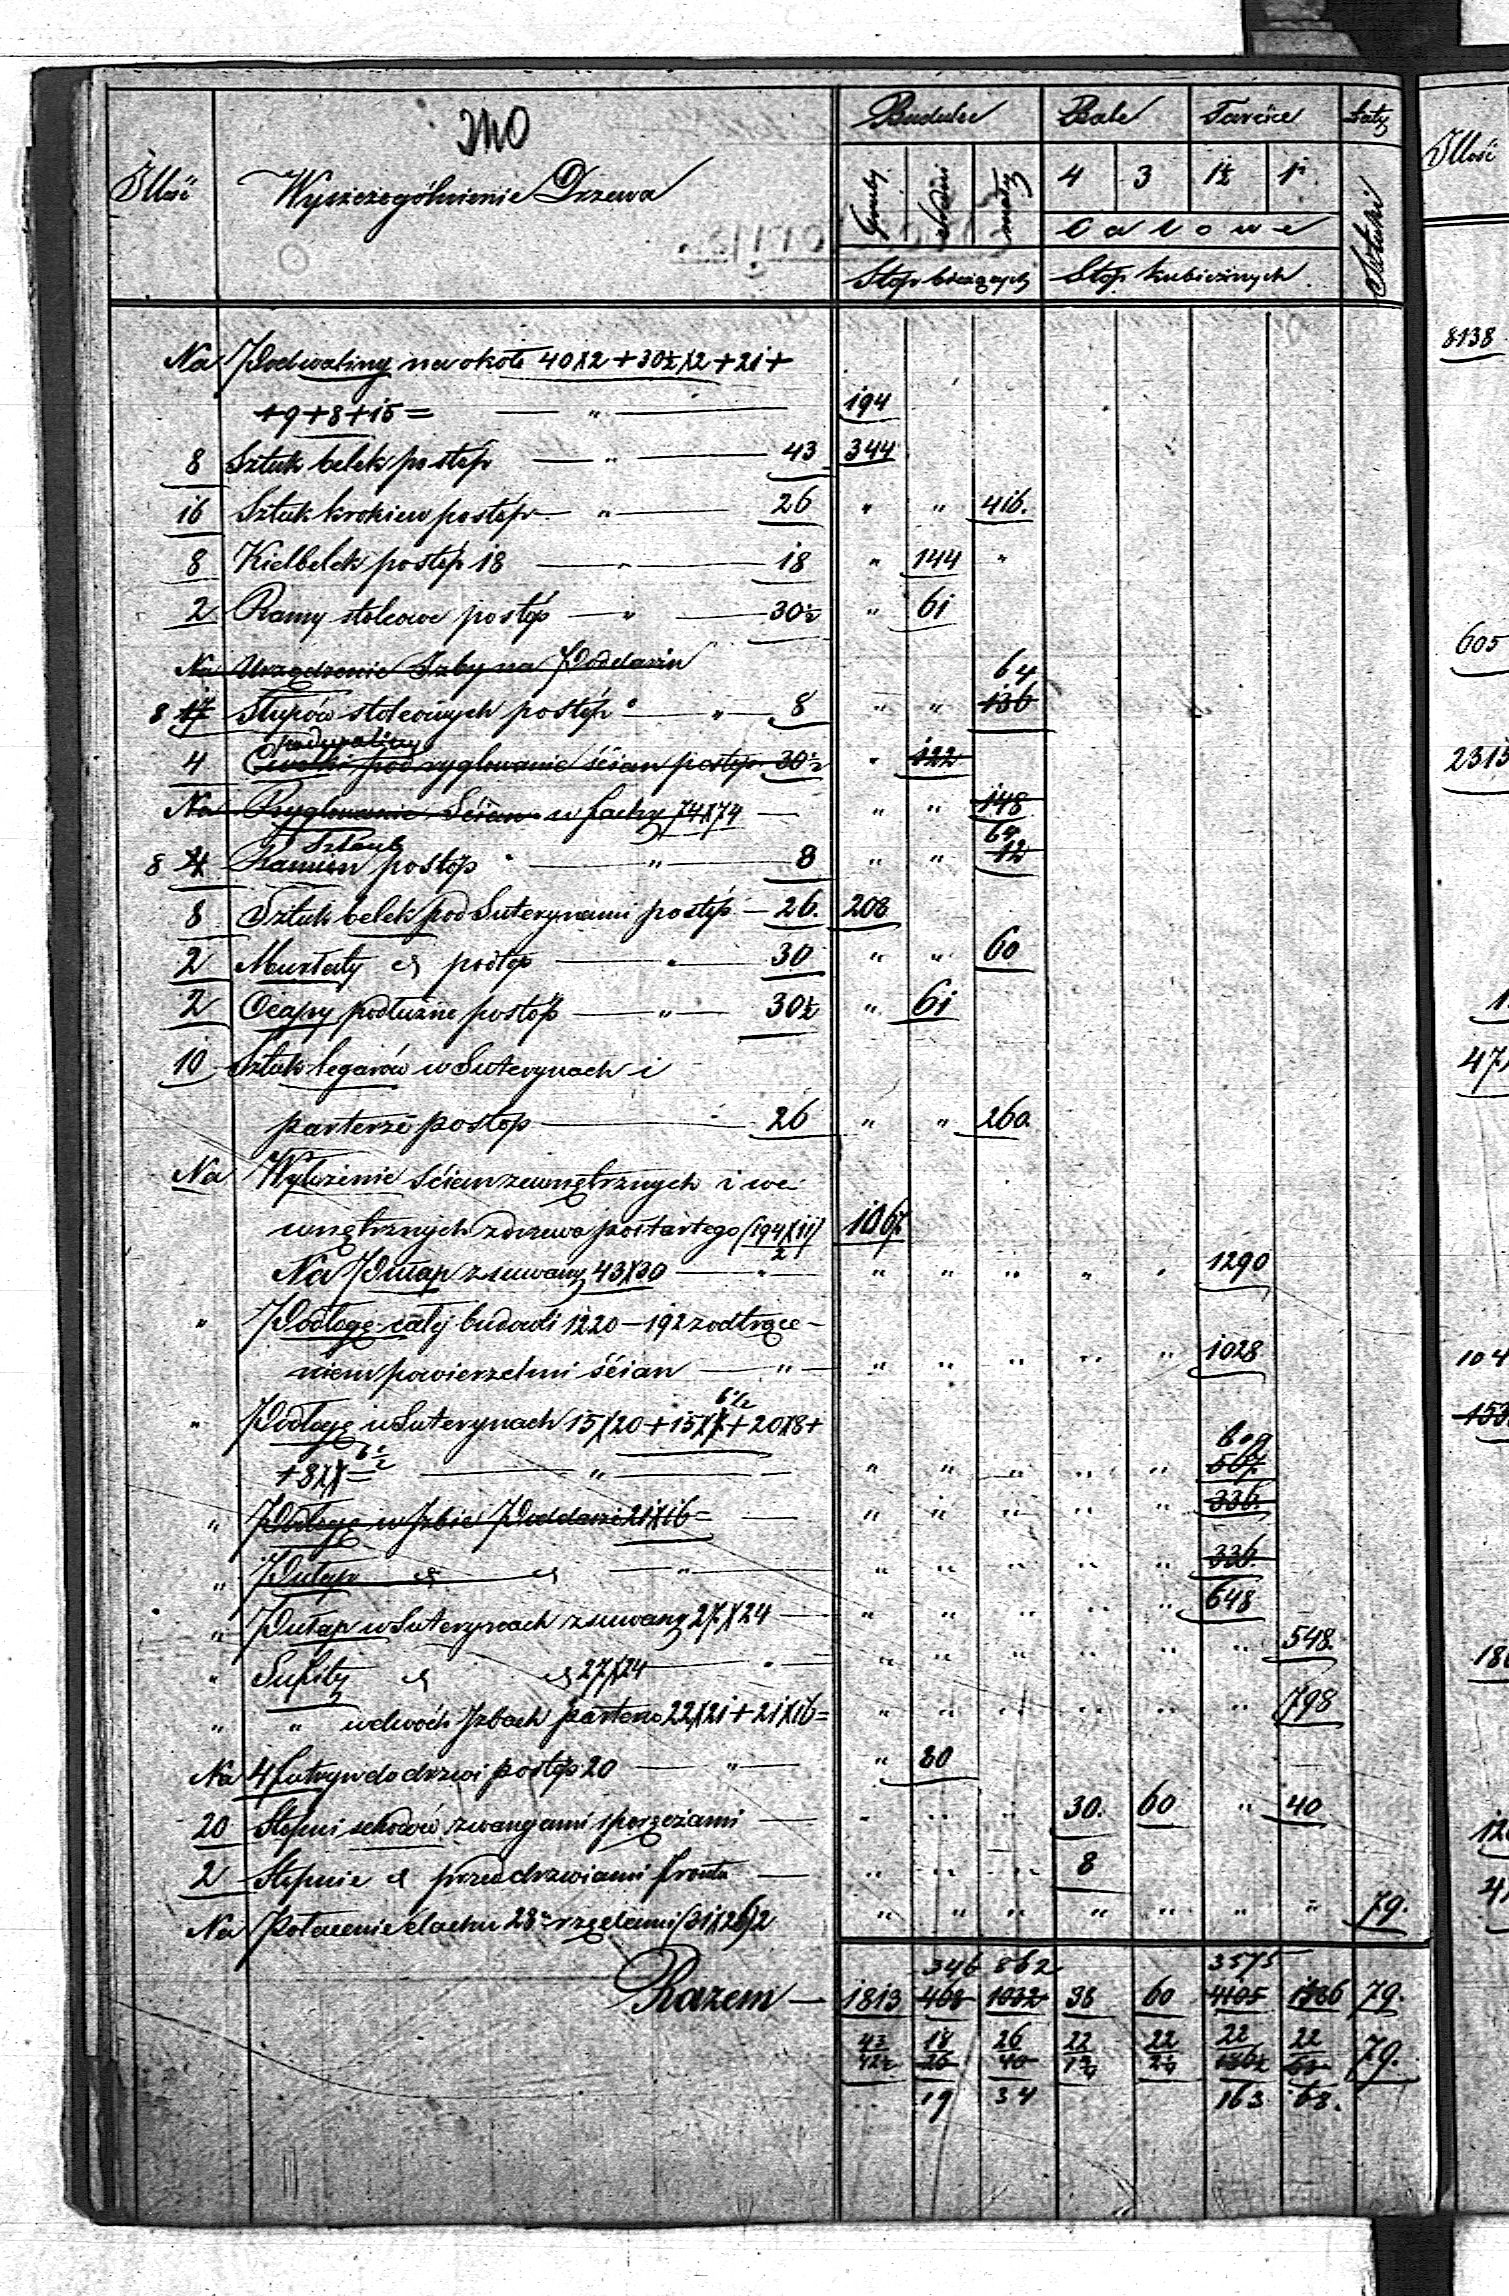 340
Illość Wyszczególnienie Drzewa Budulec Bale Tarcice Łaty
Gruby średni mały 4 3 1½ 1 Sztuki
Calowe
Stop bieżących Stop kubicznych
Na Podwaliny na około 40X2+30½X2+21+
+9+8+15= — " — 194
8 Sztuk belek po stóp — " — 43 344
16 Sztuk krokiew po stóp — " — 26 " " 416.
8 Kielbelek po stóp 18 — " — 18 " 144 "
2 Ramy stolcowe po stóp — " — 30½ " 61
Na Urządzenie Izby na Poddaszu
64
8 17 Słupów stolcowych po stóp — " — 8 " " 136
podwaliny
4 pod ryglowanie ścian po stóp 30½ " 122
Na Ryglowanie Ścian w fachy 74X74 — " " 148
Sztuk 64
8 4 Ramion po stóp — " — 8 " " 12
8 Sztuk belek pod Suterynami po stóp — 26. 208
2 Murłaty d po stóp — " — 30 " " 60
2 Ocapy podłużne po stóp — " — 30½ " 61
10 Sztuk legarów w Suterynach i
parterze po stóp — 26 " " 260.
Na Wyłożenie ścian zewnętrznych i we
wnętrznych z drzewa po tartego (194X11)/2 1067
Na Pułap zsuwany 43X30 — " — " " " " " 1290
" Podłogę całej budowli 1220–192 z odtrące-
niem powierzchni ścian — " — " " " " " 1028
6½
" Podłogę w Suterynach 15X20+15X7+20X8+
6½ 609
+8X7= — " — " " " " " 567.
" Podłogę w Izbie Poddasza 21X16= — " " " " " 336.
" Pułap d d — " — " " " " " 336.
" Pułap w Suterynach zsuwany 27X24 — " " " " " 648
" Sufity d d 27X24 — " — " " " " " " 548.
" " w dwóch Izbach parteru 22X21+21X16= " " " " " " 798
Na 4 futryn do drzwi po stóp 20 — " — " 80
20 Stopni schodów z wangami i poręczami — " " " 30. 60 " 40
2 Stopnie d przed drzwiami frontu — " " " 8
Na Połacenie dachu 28 rzędami (31X26)2 " " " " " " " 79.
346 862 3575
Razem — 1813 468 1032 38 60 4105 1386 79.
43 18 26 22 22 22 22 79.
42½ 26 40
19 34 163 68.
8138
605